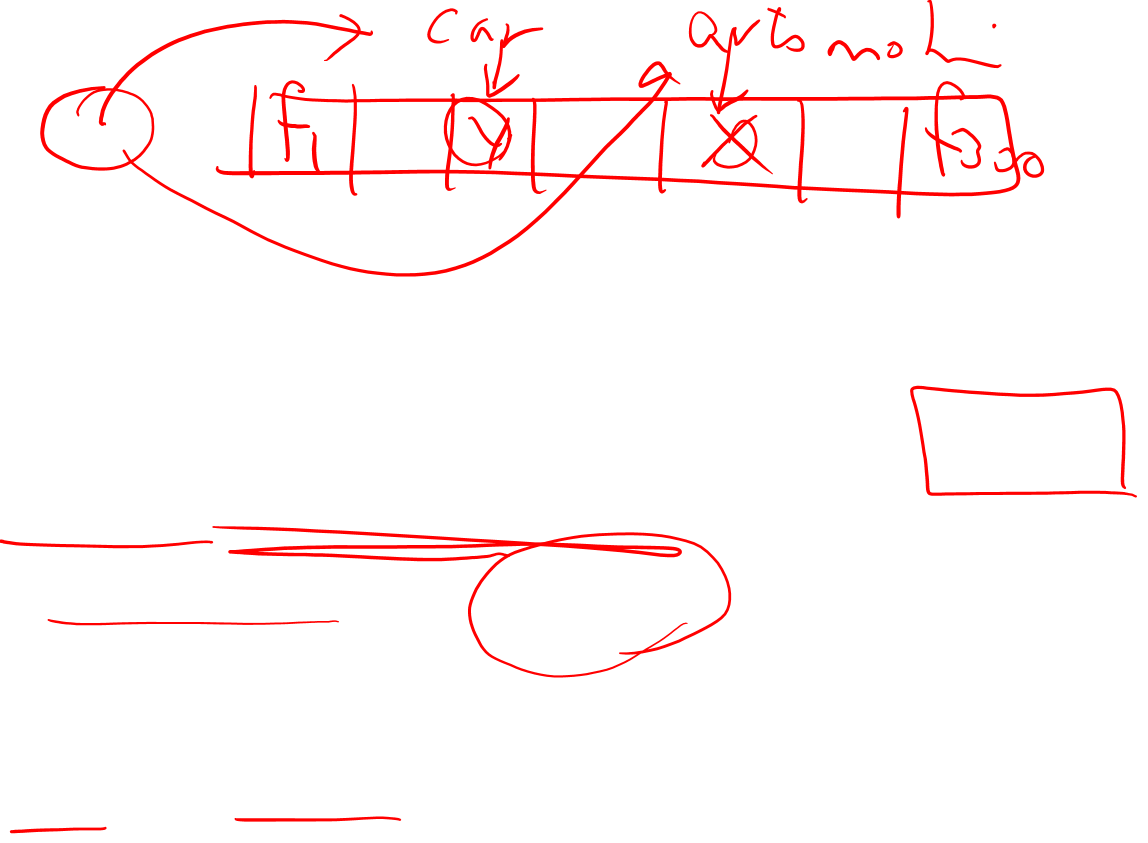 Car automobi
f1 f300